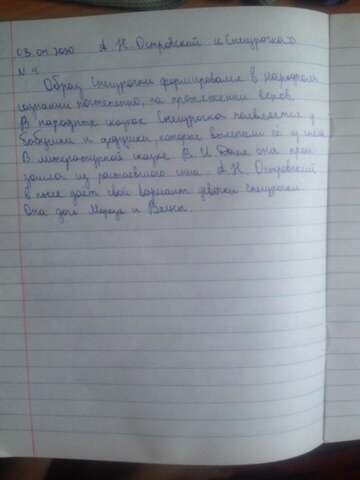 03.04.2020 А. Н. Островский «Снегурочка»
№ 1.
Образ Снегурочки формировался в народном
сознании постепенно, на протяжении веков.
В народных сказках Снегурочка появляется у
бабушки и дедушки, которые вылепили её из снега
В литературной сказке В. И. Даля она прои
зошла из растаявшего снега. А. Н. Островский
в пьесе даёт свой вариант девочки снегурочки
Она дочь Мороза и Весны.